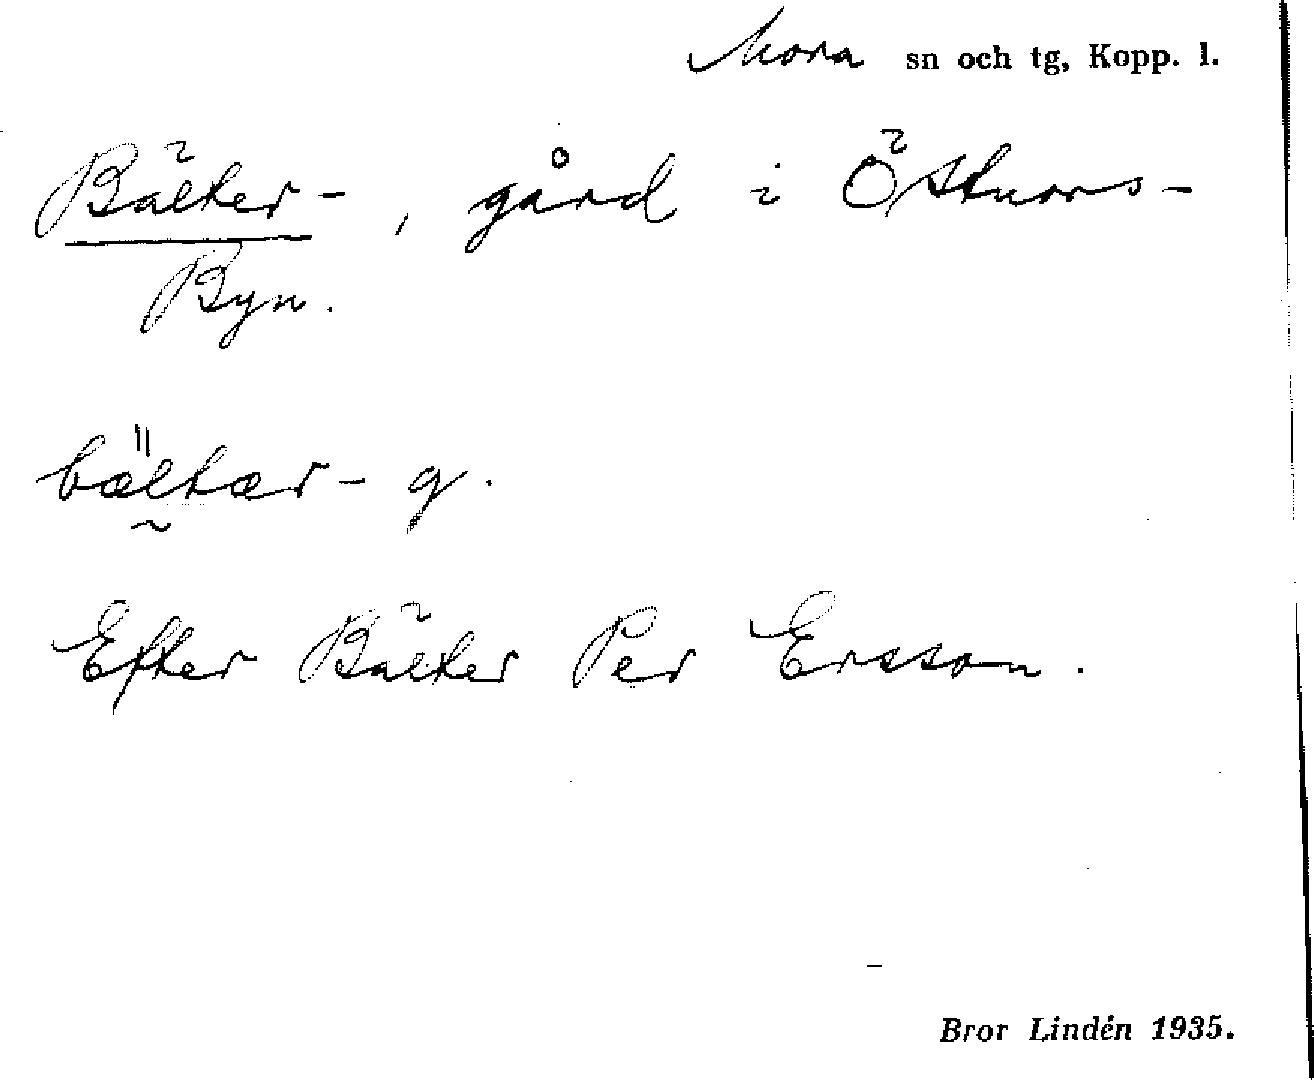 Mora sn och tg, Kopp. l.
Bälter-, gård i Östnors-
Byn.
bæltær- g.
Efter Bälter Per Ersson.
Bror Lindén 1935.